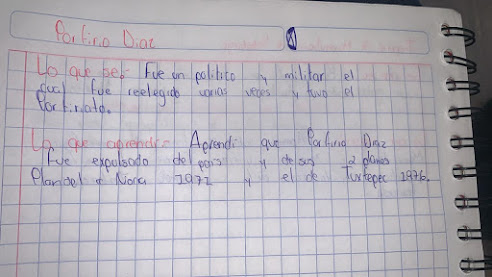 Porfirio Diaz
Lo que se:- Fue un politico y militar el
cual fue reelegido varias veces y tuvo el
Porfiriato.
Lo que aprendi:- Aprendi que Porfirio Diaz
Fue expulsado del pais y de sus 2 planes
Plan de la Noria 1971 y el de Tuxtepec 1976.